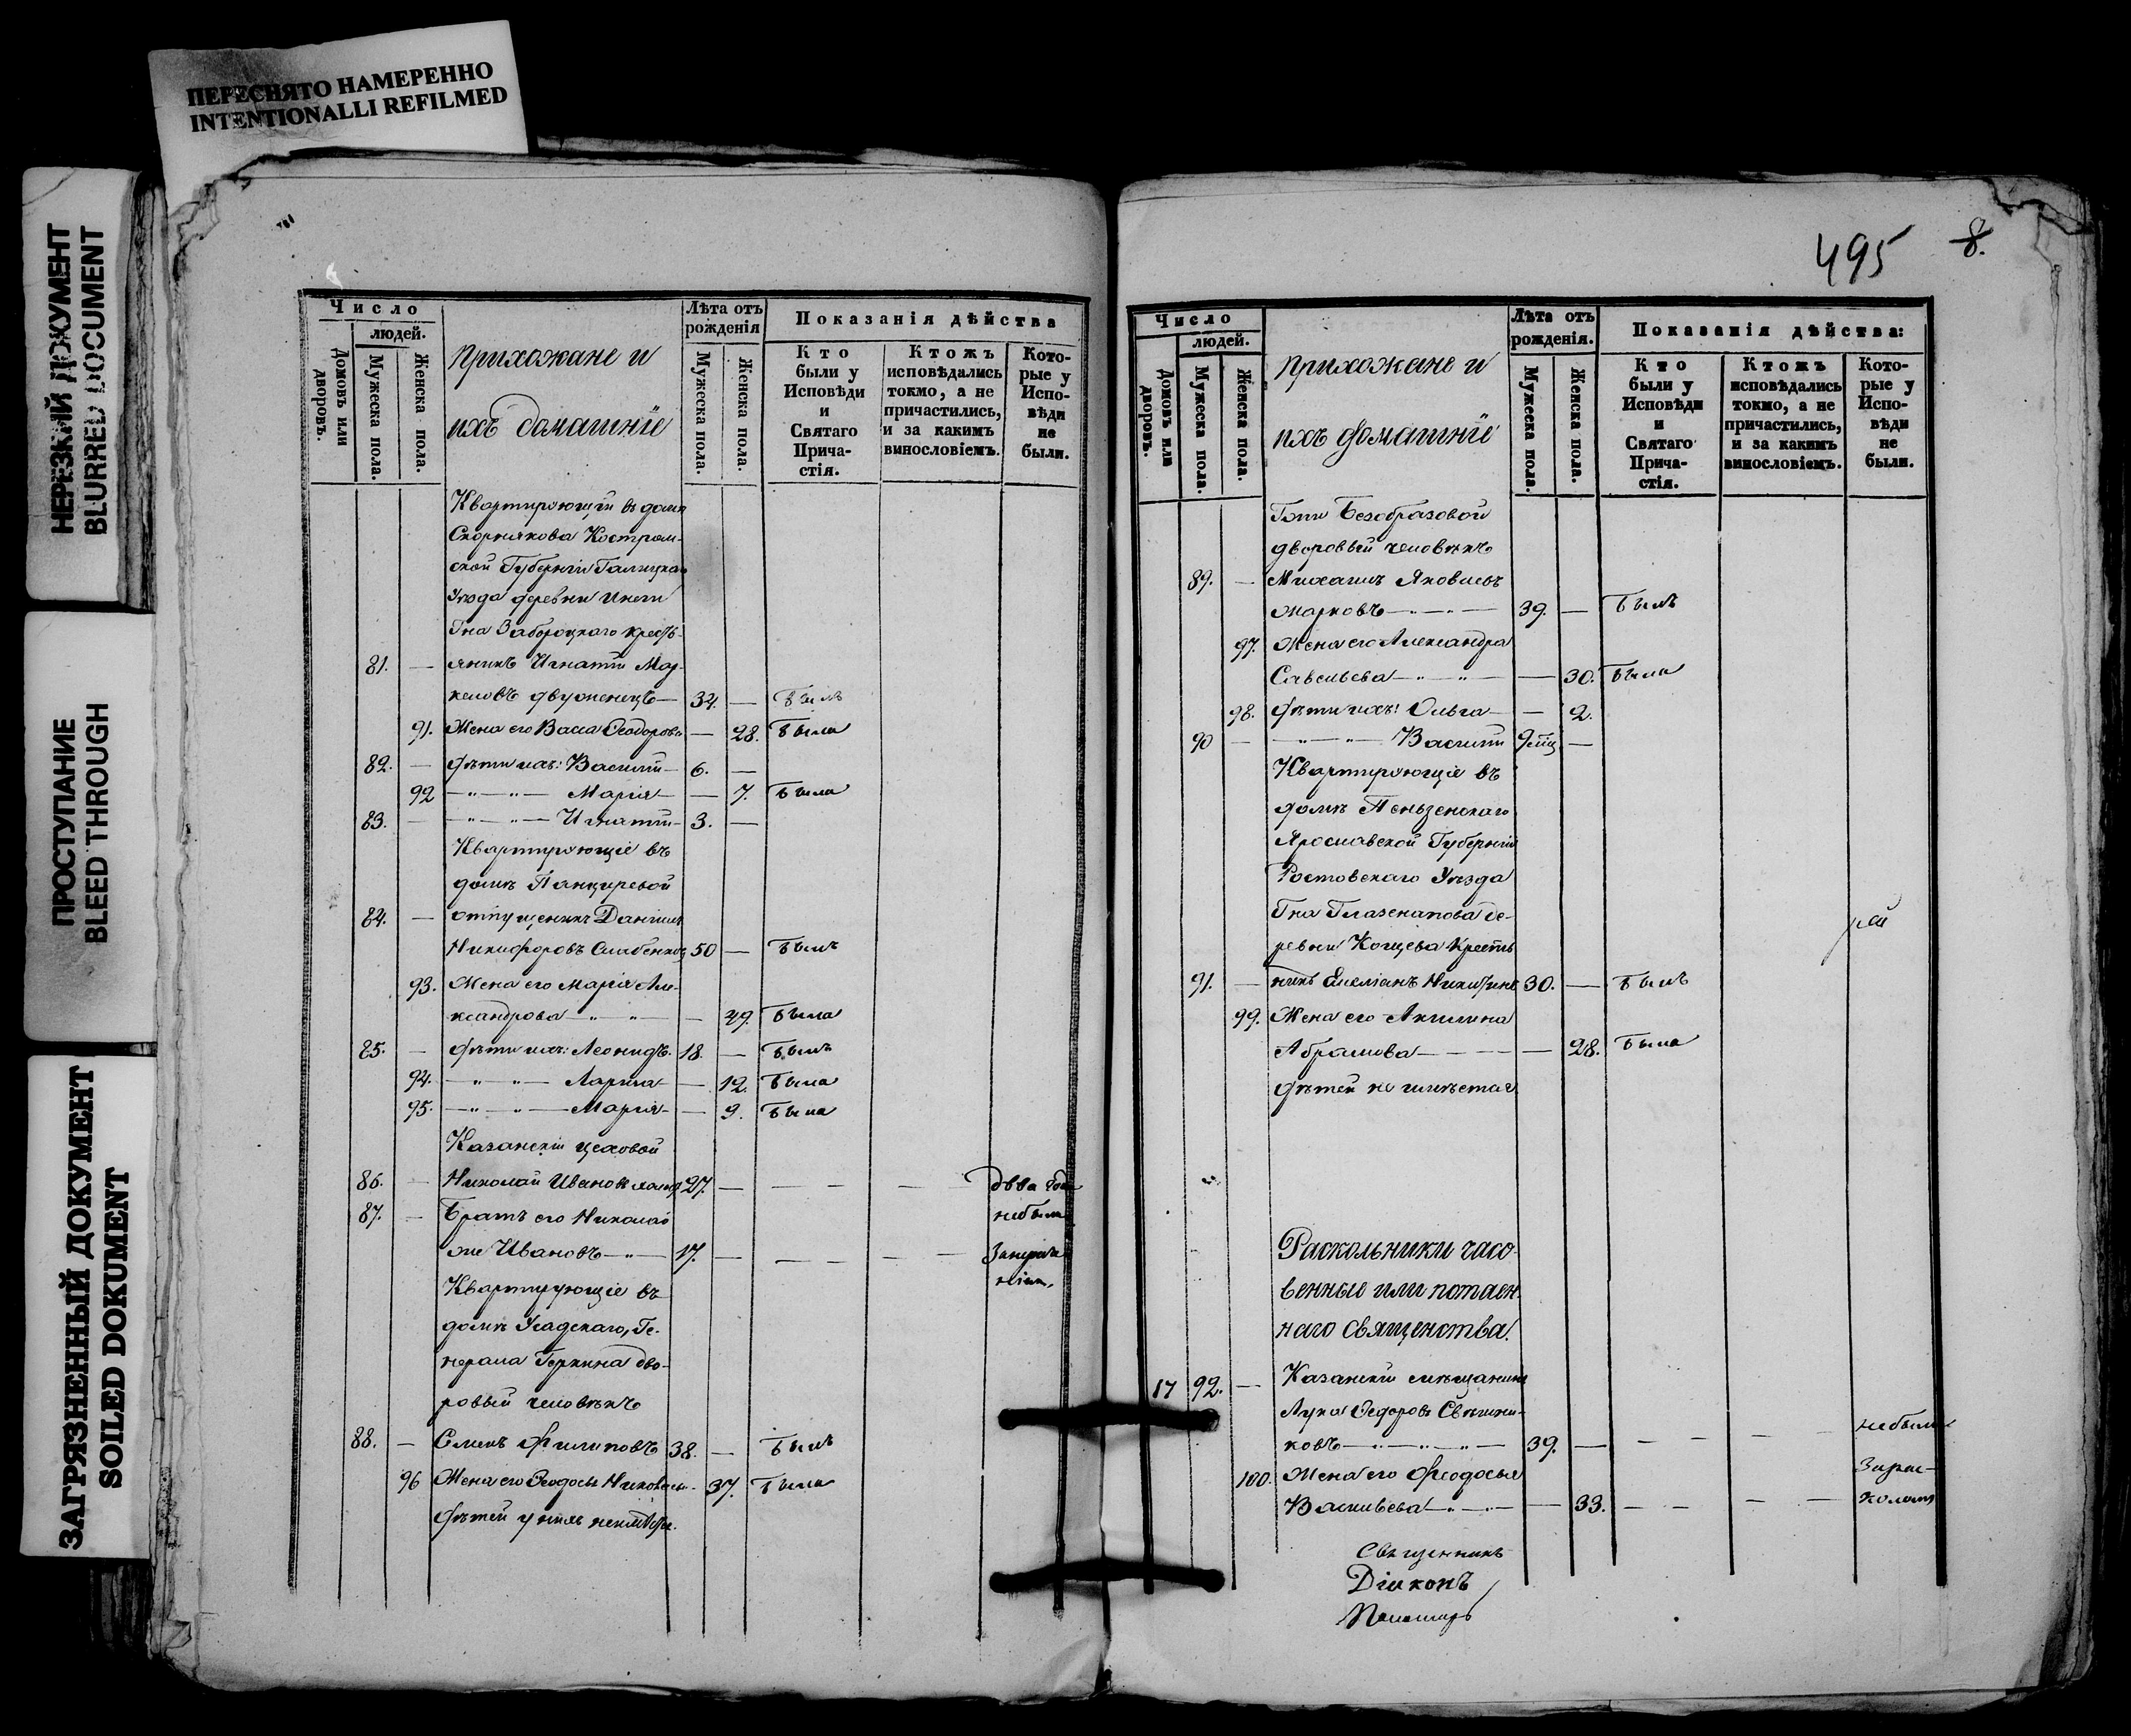 ПЕРЕСНЯТО НАМЕРЕННО
INTENTIONALLI REFILMED
НЕРЕЗКИЙ ДОКУМЕНТ
BLURRED DOCUMENT
ПРОСТУПАНИЕ
BLEED THROUGH
ЗАГРЯЗНЕННЫЙ ДОКУМЕНТ
SOILED DOKUMENT
Число
людей.
Домовъ или дворовъ.
Мужеска пола.
Женска пола.
прихожане и
ихъ домашніе
Лѣта отъ рожденія
Мужеска пола.
Женска пола.
Показанія дѣйства
Кто были у Исповѣди и Святаго Прича- стія.
Ктожъ исповѣдались токмо, а не причастились, и за какимъ винословіемъ.
Кото- рые у Испо- вѣди не были.
Квартирующій въ домѣ
Скорнякова Костром-
ской Губерніи Галицкаго
Уѣзда деревни
Гна Заборецкаго кресть-
81. — янинъ Игнатій Мар-
келовъ двуженецъ — 34. — былъ
91. Жена его Васса Ѳеодорова — 28. была
82. — дѣти ихъ: Василій — 6. —
92 — " — " — Марія — — 7. была
83. — — " — " — Игнатій — 3. —
Квартирующіе въ
домѣ Панцыревой
84. — отпущенникъ Даніилъ
Никифоровъ 50 — былъ
93. Жена его Марія Але-
ксандрова — " — " — — 49. была
85. — дѣти ихъ: Леонидъ. 18. — былъ
94. — " — " — Лариса — — 12. была
95. — " — " — Марія — — 9. была
Казанскій цеховой
86. — Николай Ивановъ 27. — — — — — два года
87. — Братъ его Николай небыли
же Ивановъ — " — 17. — — — — —
Квартирующіе въ
домѣ Усадскаго, Ге-
нерала Геркина дво-
ровый человѣкъ
88. — Семенъ Филиповъ 38. — былъ
96 Жена его Ѳеодосья 37. была
дѣтей у нихъ
495 8.
Число
людей.
Домовъ или дворовъ.
Мужеска пола.
Женска пола.
прихожане и
ихъ домашніе
Лѣта отъ рожденія.
Мужеска пола.
Женска пола.
Показанія дѣйства:
Кто были у Исповѣди и Святаго Прича- стія.
Ктожъ исповѣдались токмо, а не причастились, и за какимъ винословіемъ.
Кото- рые у Испо- вѣди не были.
Гжи Безобразовой
дворовый человѣкъ
89. — Михаилъ Яковлевъ
Марковъ — " — " — 39. — былъ
97. Жена его Александра
Савельева — " — " — — 30. была
98. дѣти ихъ: Ольга — — 2.
90 — — " — " — Василій 9 —
Квартирующіе въ
домѣ Пензенскаго
Ярославской Губерніи
Ростовскаго Уѣзда
Гна Глазенапова де-
ревни Кощева Кресть
91. — нинъ Емеліанъ Никитинъ 30. — былъ
99. Жена его Акилина
Абрамова — — — — — 28. была
дѣтей не имѣетъ
Раскольники часо-
венные или потаен-
наго священства.
Казанскій мѣщанинъ
17 92. — Лука Ѳедоровъ Свѣшни-
ковъ — " — " — " — 39. — — — — — небыли
100. Жена его Ѳеодосья За рас-
Васильева — " — " — — 33. — — — — коломъ
Священникъ
Діаконъ
Пономарь